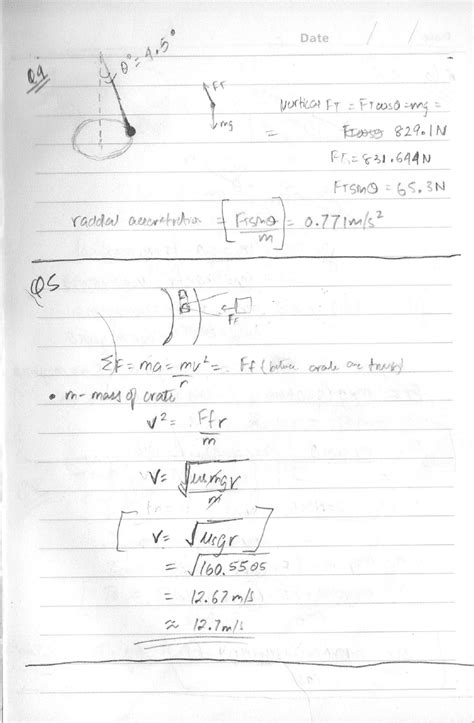 Date / /
Q4
θ° = 4.5°
FT
mg
Vertical FT = FTcosθ = mg =
= 829.1N
FT = 831.644N
FTsinθ = 65.3N
radial = [FTsinθ/m] = 0.771m/s²
Q5
Ff
ΣF = ma = mv²/r = Ff (between crate and truck)
• m - mass of crate
v² = Ffr/m
v = √μsmgr/m
[v = √μsgr]
= √160.5505
= 12.67 m/s
≈ 12.7m/s